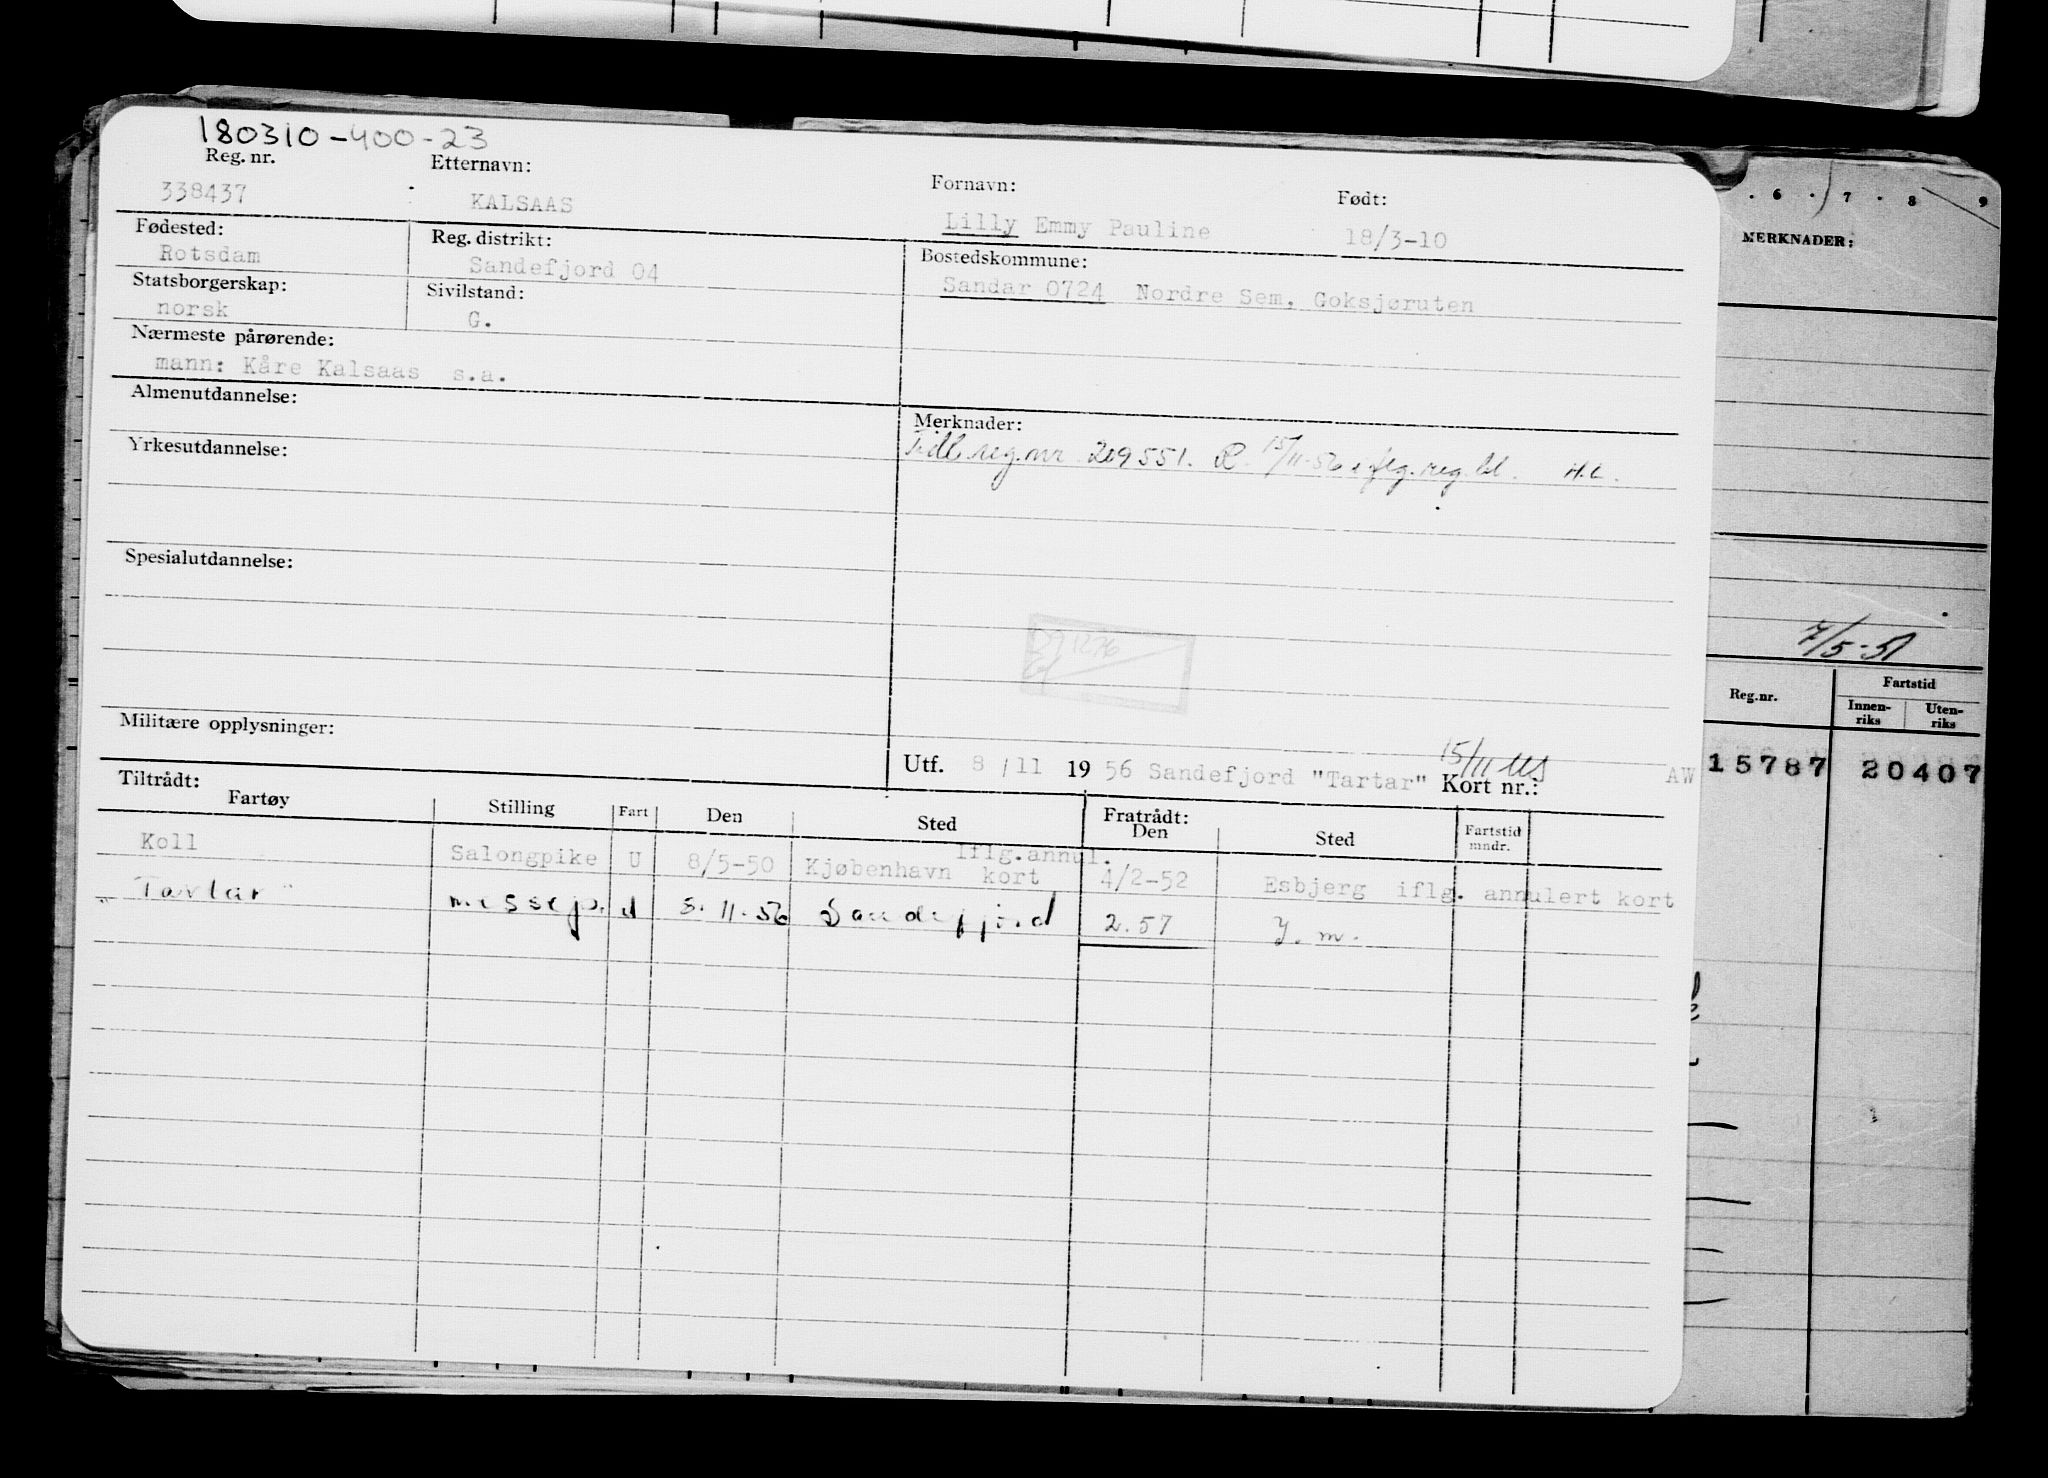 180310-400-23
Reg. nr. Etternavn: Fornavn: Født:
338437 KALSAAS Lilly Emmy Pauline 18/3-10
Fødested: Reg. distrikt: Bostedskommune:
Rotsdam Sandefjord 04 Sandar 0724 Nordre Sem, Goksjøruten
Statsborgerskap: Sivilstand:
norsk G.
Nærmeste pårørende:
mann: Kåre Kalsaas s.a.
Almenutdannelse: Merknader:
Tidl. reg. nr 209551. R. 15/11-56 iflg. reg. bl. H.L.
Yrkesutdannelse:
Spesialutdannelse:
291276
Militære opplysninger:
Utf. 8/11 1956 Sandefjord "Tartar" Kort nr.: AW
15/11
Tiltrådt: Fratrådt:
Fartøy Stilling Fart Den Sted Den Sted Fartstid mndr.
Koll Salongpike U 8/5-50 Kjøbenhavn iflg. annul. kort 4/2-52 Esbjerg iflg. annulert kort
"Tartar" messep. U 8.11.56 Sandefjord 2.57 Y.m.
. 6 . 7 . 8 9
MERKNADER:
7/5-51
Reg.nr. Fartstid
Innen-riks Uten-riks
15787 20407